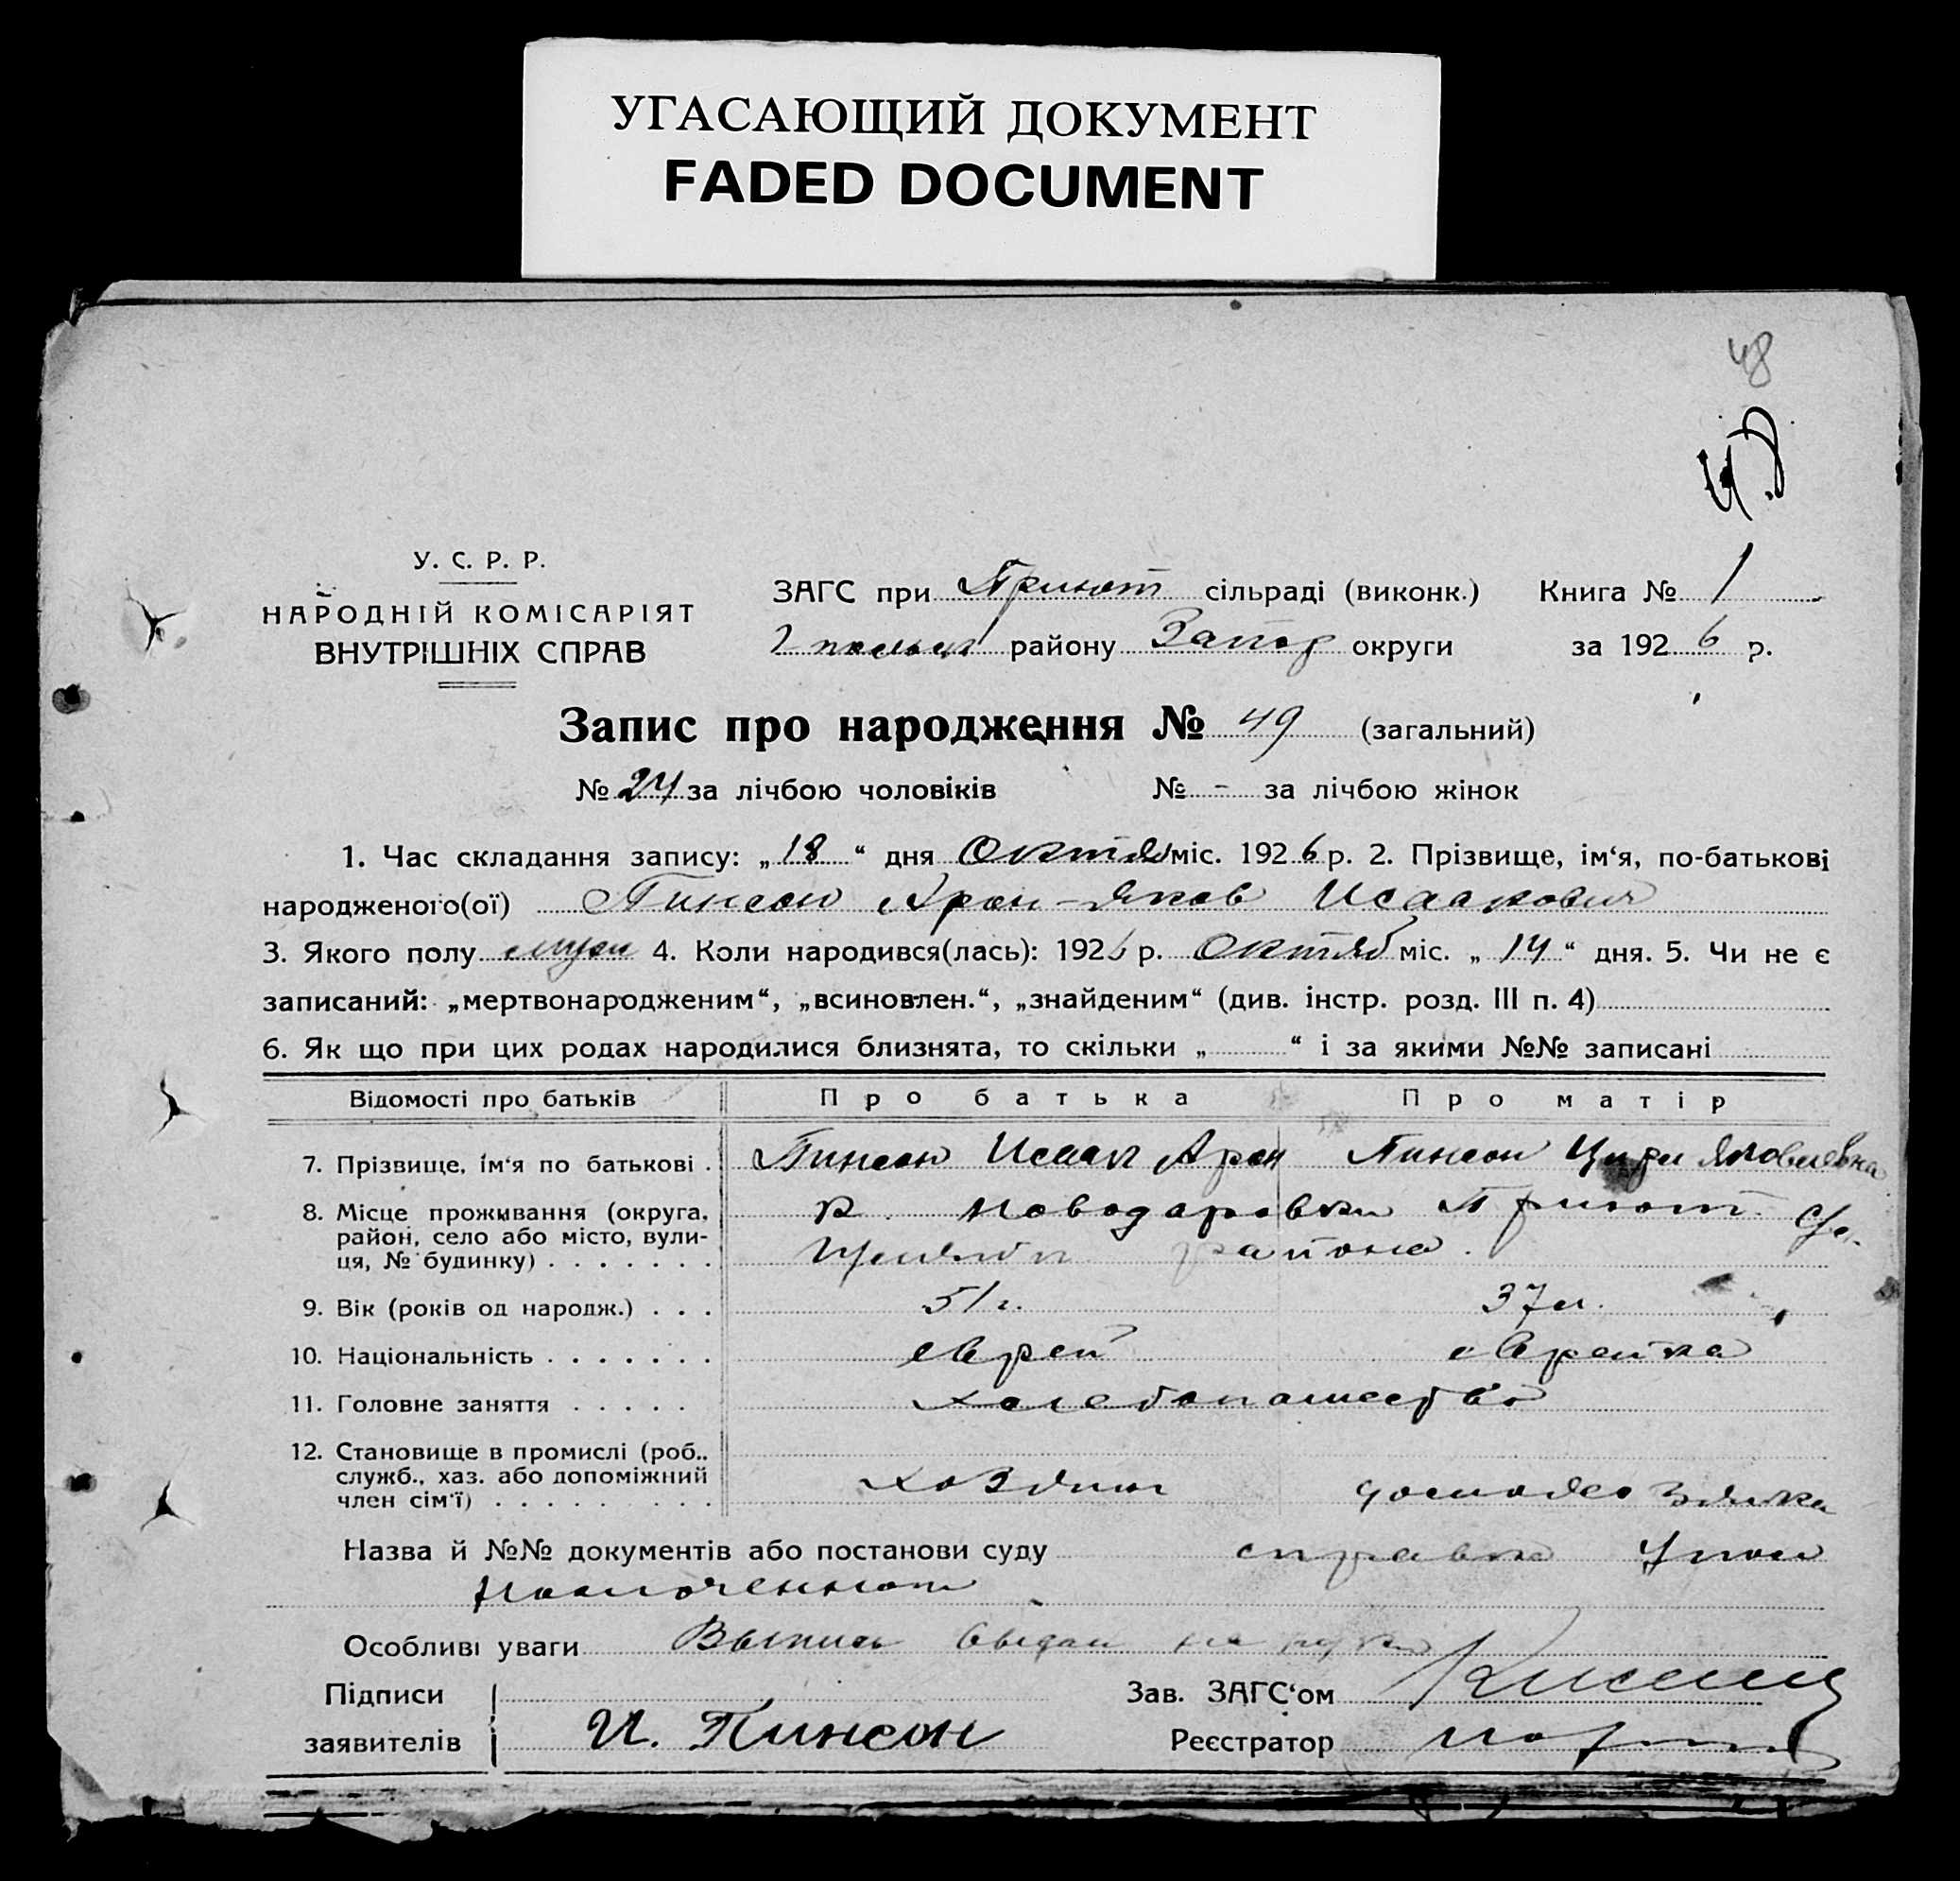 УГАСАЮЩИЙ ДОКУМЕНТ
FADED DOCUMENT
48
У. С. Р. Р.
НАРОДНІЙ КОМІСАРІЯТ
ВНУТРІШНІХ СПРАВ
ЗАГС при Приют сільраді (виконк.) Книга № 1
району Запор округи за 1926 р.
Запис про народження № 49 (загальний)
№ 24 за лічбою чоловіків № - за лічбою жінок
1. Час складання запису: „18“ дня Октяб міс. 1926 р. 2. Прізвище, ім‘я, по-батькові
народженого(ої) Пинсон Арон-Яков Исаакович
3. Якого полу муж 4. Коли народився(лась): 1926 р. Октяб міс. „14“ дня. 5. Чи не є
записаний: „мертвонародженим“, „всиновлен.“, „знайденим“ (див. інстр. розд. III п. 4)
6. Як що при цих родах народилися близнята, то скільки „ “ і за якими №№ записані
Відомості про батьків Про батька Про матір
7. Прізвище, ім‘я по батькові . Пинсон Исаак Арон Пинсон Яковлевна
8. Місце проживання (округа, К. Новодаровка Приют с/с.
район, село або місто, вули-
ця, № будинку) . . . . . . . района.
9. Вік (років од народж.) . . . 51г. 37л.
10. Національність . . . . . . . еврей еврейка
11. Головне заняття . . . . . хлебопашество
12. Становище в промислі (роб..
служб., хаз. або допоміжний
член сім‘ї) . . . . . . . . . хозяин домохозяйка
Назва й №№ документів або постанови суду справка
Особливі уваги Выпись выдан на руки
Підписи Зав. ЗАГС‘ом
заявителів И. Пинсон Реєстратор